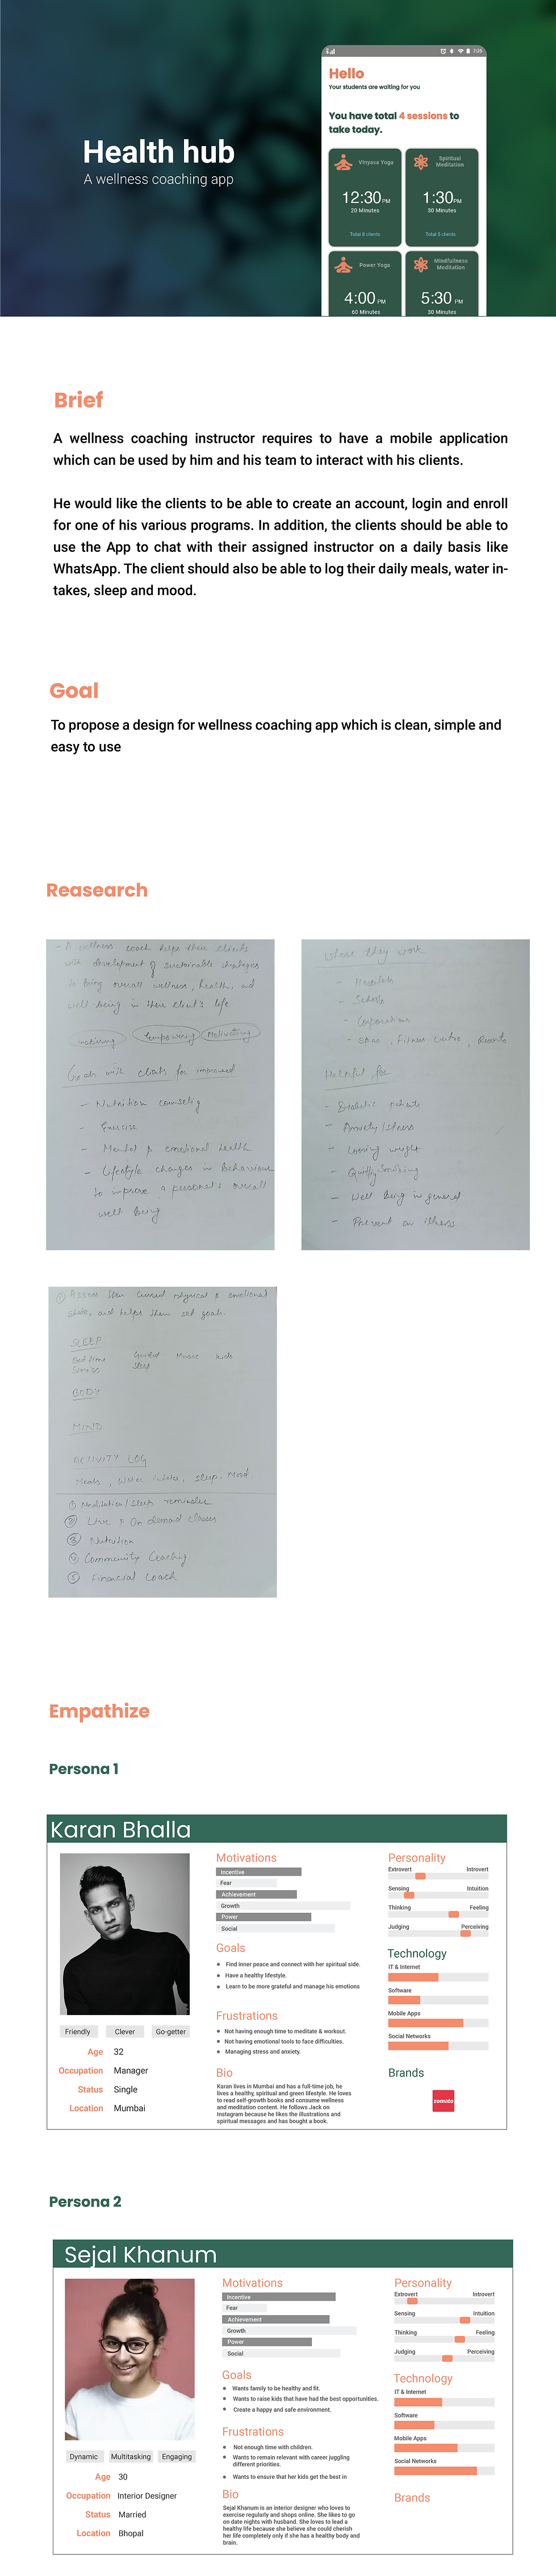 7:35
Hello
Your students are waiting for you
You have total 4 sessions to
take today.
Health hub
A wellness coaching app
Vinyasa Yoga
12:30 PM
20 Minutes
Total 8 clients
Spiritual
Meditation
1:30 PM
30 Minutes
Total 5 clients
Power Yoga
4:00 PM
60 Minutes
Mindfullness
Meditation
5:30 PM
30 Minutes
Brief
A wellness coaching instructor requires to have a mobile application
which can be used by him and his team to interact with his clients.
He would like the clients to be able to create an account, login and enroll
for one of his various programs. In addition, the clients should be able to
use the App to chat with their assigned instructor on a daily basis like
WhatsApp. The client should also be able to log their daily meals, water in-
takes, sleep and mood.
Goal
To propose a design for wellness coaching app which is clean, simple and
easy to use
Reasearch
- A wellness coach helps their clients
with development of sustainable strategies
to bring overall wellness, health, and
well being in their client's life
Empowering Motivating
Goals with clients for improved
- Nutrition counseling
- Exercise
- Mental & emotional health
- Lifestyle changes in behaviour
to improve a personal's overall
well being
Where they work
- Hospitals
- Schools
- Corporations
- Spas, Fitness Centre, Resorts
Helpful for
- Diabetic patients
- Anxiety/Stress
- Loosing weight
- Quitting Smoking
- Well being in general
- Prevent an illness
① Assess their current physical & emotional
state, and helps them set goals.
SLEEP
Bed time Guided Music kids
Stories Sleep
BODY
MIND
ACTIVITY LOG
Meals, Water Intake, Sleep, Mood.
① Meditation/Sleep reminder
② Live & On demand classes
③ Nutrition
④ Community Coaching
⑤ Financial Coach
Empathize
Persona 1
Karan Bhalla
Friendly Clever Go-getter
Age 32
Occupation Manager
Status Single
Location Mumbai
Motivations
Incentive
Fear
Achievement
Growth
Power
Social
Goals
Find inner peace and connect with her spiritual side.
Have a healthy lifestyle.
Learn to be more grateful and manage his emotions
Frustrations
Not having enough time to meditate & workout.
Not having emotional tools to face difficulties.
Managing stress and anxiety.
Bio
Karan lives in Mumbai and has a full-time job, he
lives a healthy, spiritual and green lifestyle. He loves
to read self-growth books and consume wellness
and meditation content. He follows Jack on
Instagram because he likes the illustrations and
spiritual messages and has bought a book.
Personality
Extrovert Introvert
Sensing Intuition
Thinking Feeling
Judging Perceiving
Technology
IT & Internet
Software
Mobile Apps
Social Networks
Brands
zomato
Persona 2
Sejal Khanum
Dynamic Multitasking Engaging
Age 30
Occupation Interior Designer
Status Married
Location Bhopal
Motivations
Incentive
Fear
Achievement
Growth
Power
Social
Goals
Wants family to be healthy and fit.
Wants to raise kids that have had the best opportunities.
Create a happy and safe environment.
Frustrations
Not enough time with children.
Wants to remain relevant with career juggling
different priorities.
Wants to ensure that her kids get the best in
Bio
Sejal Khanum is an interior designer who loves to
exercise regularly and shops online. She likes to go
on date nights with husband. She loves to lead a
healthy life because she believe she could cherish
her life completely only if she has a healthy body and
brain.
Personality
Extrovert Introvert
Sensing Intuition
Thinking Feeling
Judging Perceiving
Technology
IT & Internet
Software
Mobile Apps
Social Networks
Brands